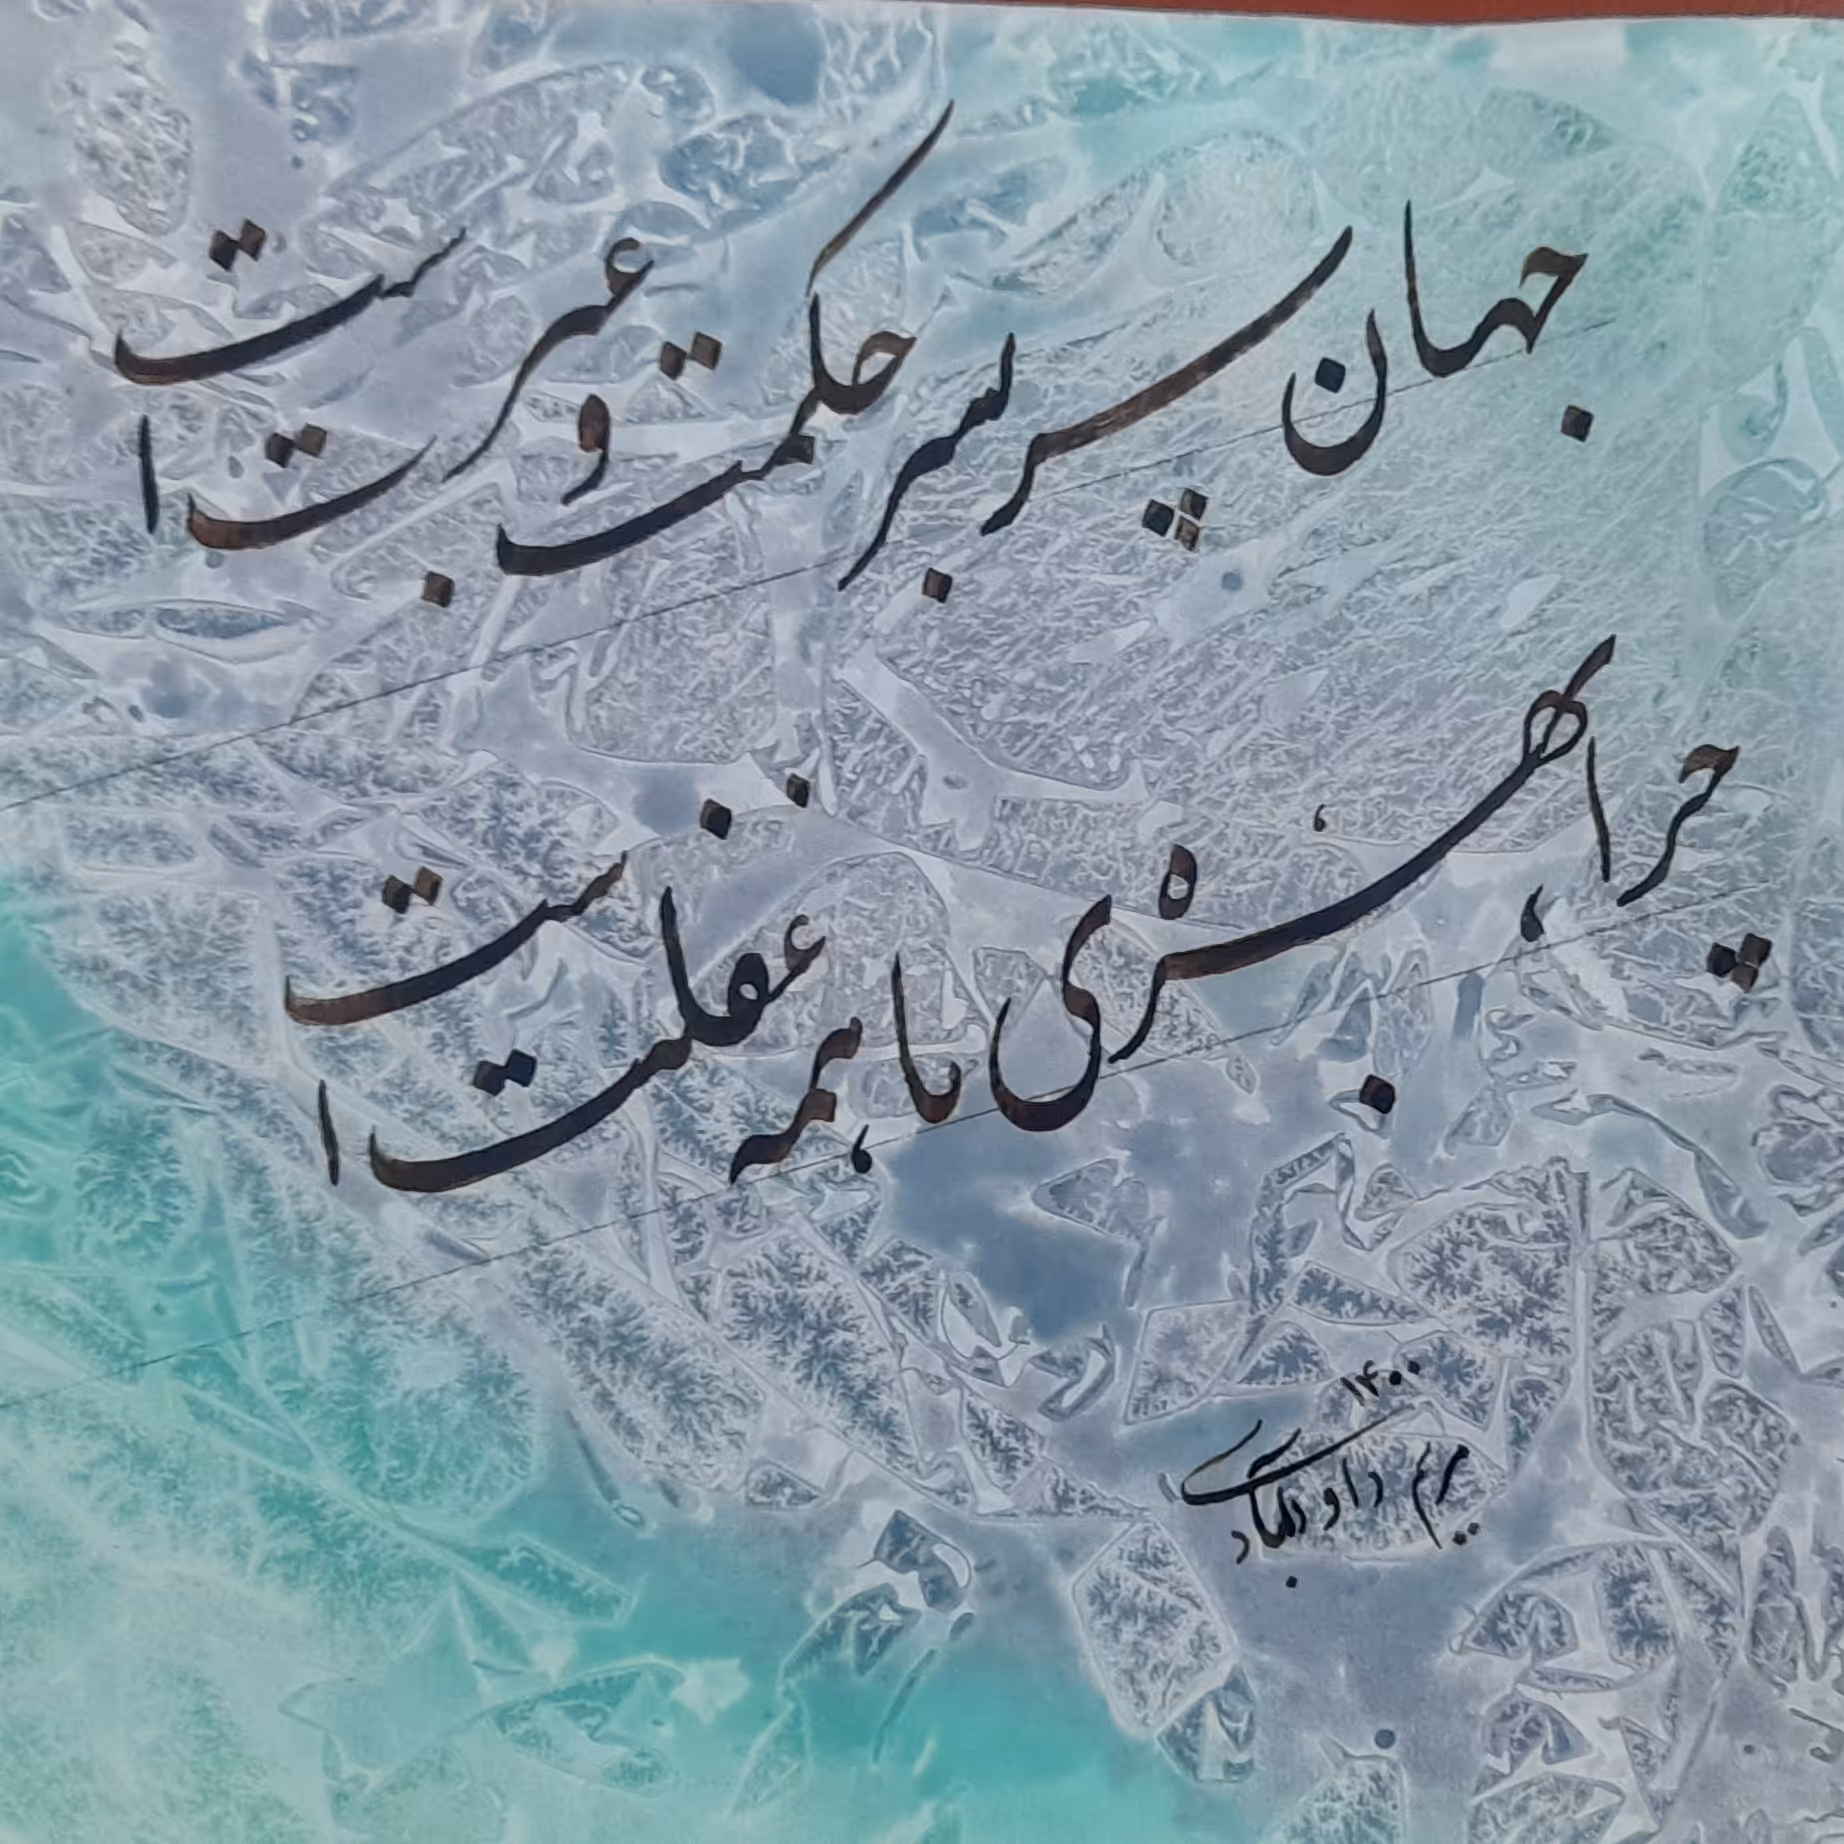 جهان سربسر حکمت و عبرت است
چرا بهره‌ی ما همه غفلت است
۱۴۰۰
مریم داودآبادی